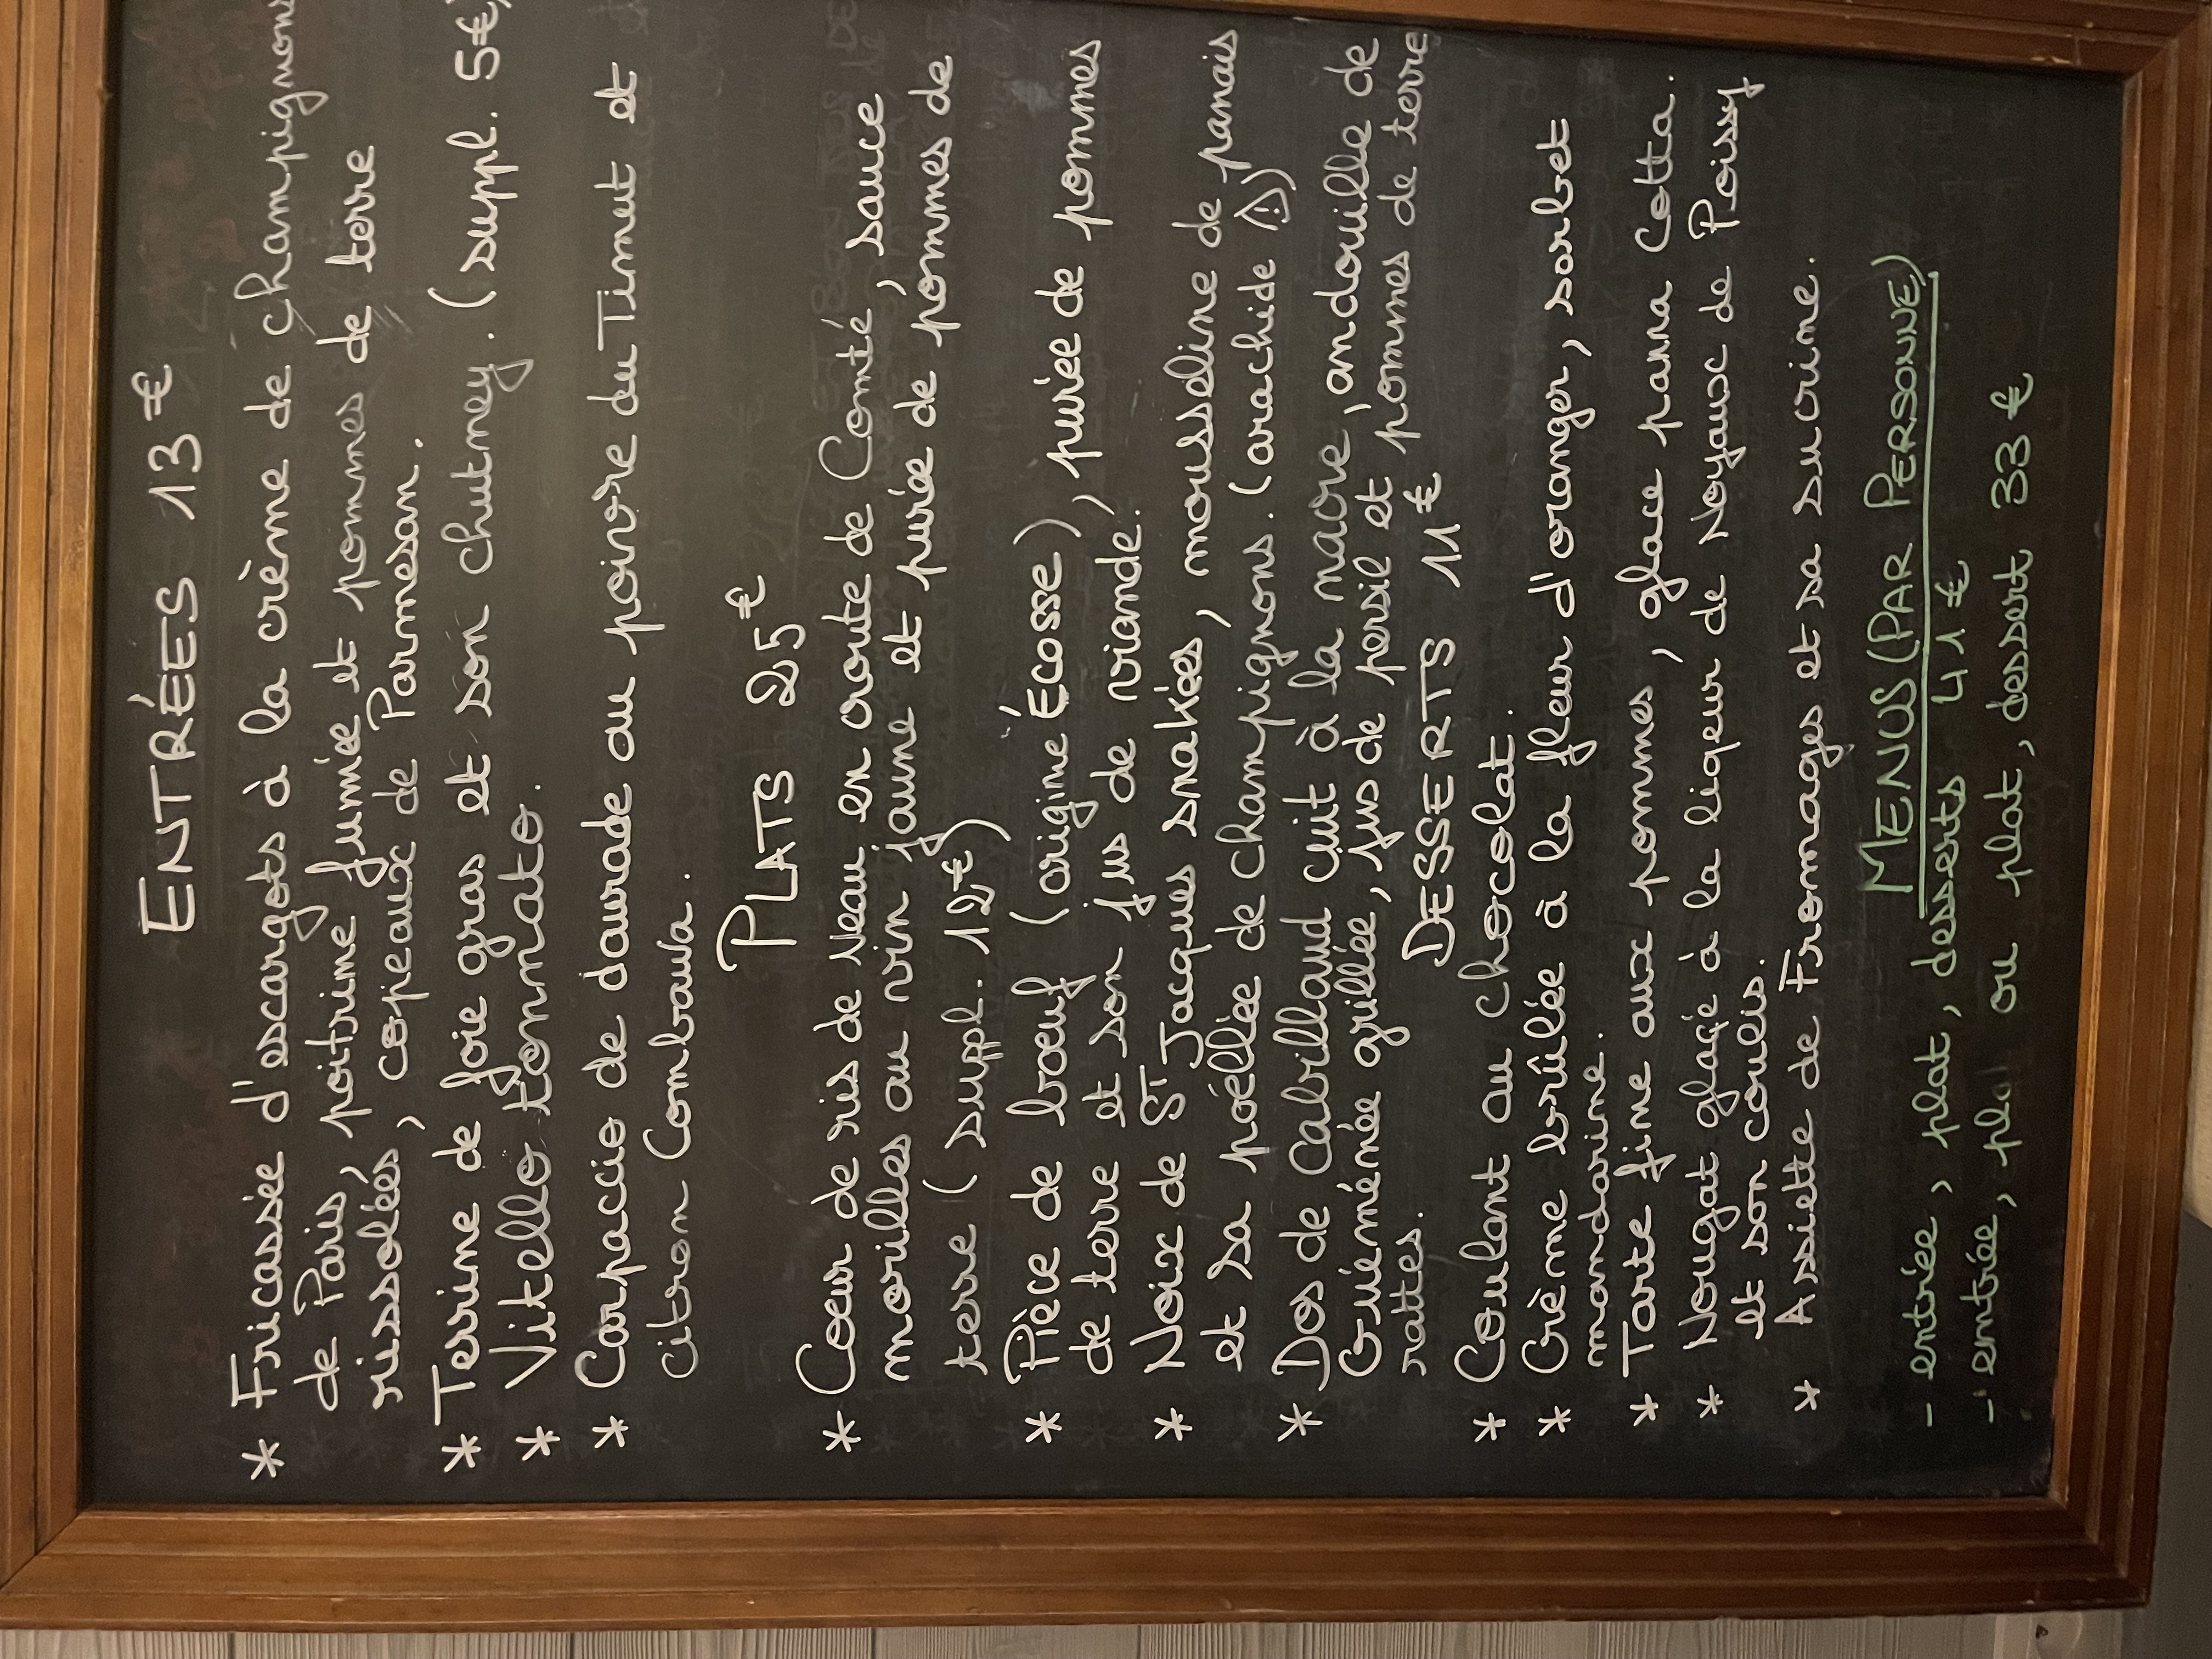 ENTRÉES 13€
* Fricassée d'escargots à la crème de champignons
de Paris, poitrine fumée et pommes de terre
rissolées, copeaux de Parmesan.
* Terrine de foie gras et son chutney. (suppl. 5€)
* Vitello tonnato.
* Carpaccio de daurade au poivre du Timut et
citron Combava.
PLATS 25€
* Coeur de ris de Veau en croute de Comté, sauce
morilles au vin jaune et purée de pommes de
terre (suppl. 12€)
* Pièce de boeuf (origine Écosse), purée de pommes
de terre et son jus de viande.
* Noix de ST Jacques snakées, mousseline de panais
et sa poêlée de champignons. (arachide ⚠)
* Dos de Cabillaud cuit à la nacre, andouille de
Guéménée grillée, jus de persil et pommes de terre
rattes.
DESSERTS 11€
* Coulant au chocolat.
* Crème brûlée à la fleur d'oranger, sorbet
mandarine.
* Tarte fine aux pommes, glace panna Cotta.
* Nougat glaçé à la liqeur de Noyaux de Poissy
et son coulis.
* Assiette de Fromages et sa sucrine.
MENUS (PAR PERSONNE)
- entrée, plat, desserts 41€
- entrée, plat ou plat, dessert 33€